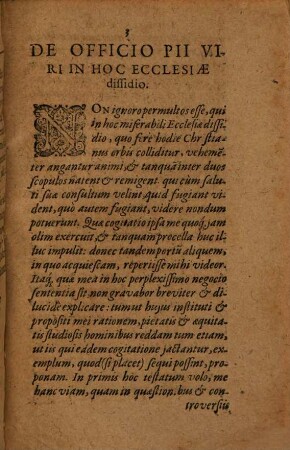 DE OFFICIO PII VI-
RI IN HOC ECCLESIÆ
dissidio.
NON ignoro permultos esse, qui
in hoc miserabili Ecclesiæ dissi-
dio, quo ferè hodie Christia-
nus orbis colliditur, vehemē-
ter angantur animi & tanquā inter duos
scopulos natent & remigent: qui cùm salu-
ti suæ consultum velint, quid fugiant vi-
dent, quò autem fugiant, videre nondum
potuerunt. Quæ cogitatio ipsa me quoq; jam
olim exercuit & tanquam procella huc il-
luc impulit: donec tandem portū aliquem,
in quo acquiescam, reperisse mihi videor.
Itaq; quæ mea in hoc perplexissimo negocio
sententia sit non gravabor breviter & di-
lucidè explicare: tum ut hujus instituti &
propositi mei rationem, pietatis & æquita-
tis studiosis hominibus reddam: tum etiam,
ut iis qui eadem cogitatione jactantur, ex-
emplum, quod (si placet) sequi possint, pro-
ponam. In primis hoc testatum volo, me
hanc viam, quam in quæstionibus & con-
troversiis